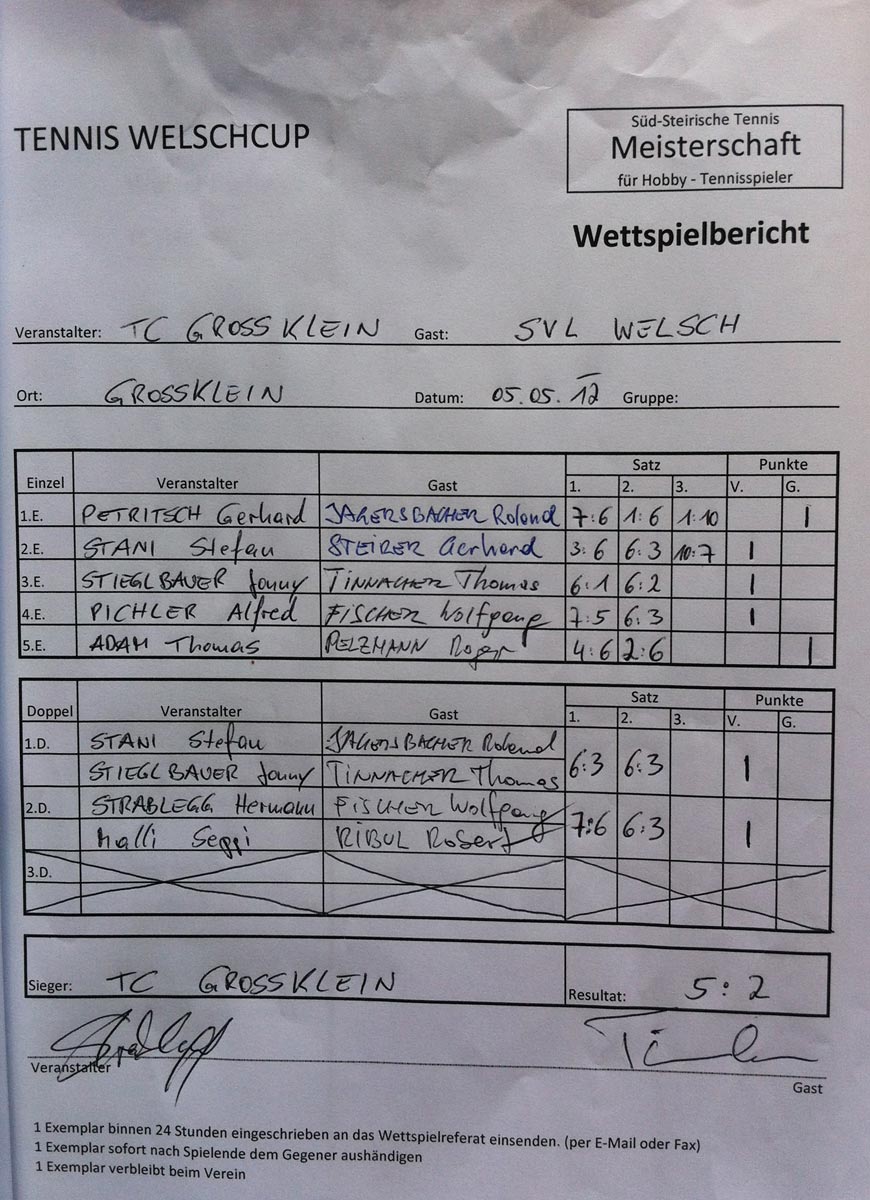 TENNIS WELSCHCUP
Süd-Steirische Tennis
Meisterschaft
für Hobby - Tennisspieler
Wettspielbericht
Veranstalter: TC GROSS KLEIN Gast: SVL WELSCH
Ort: GROSSKLEIN Datum: 05.05.12 Gruppe:
Satz Punkte
Einzel Veranstalter Gast 1. 2. 3. V. G.
1.E. PETRITSCH Gerhard JAGERSBACHER Roland 7:6 1:6 1:10 1
2.E. STANI Stefan STEIRER Gerhard 3:6 6:3 10:7 1
3.E. STIEGLBAUER Jonny TINNACHER Thomas 6:1 6:2 1
4.E. PICHLER Alfred FISCHER Wolfgang 7:5 6:3 1
5.E. ADAM Thomas PELZMANN Roger 4:6 2:6 1
Satz Punkte
Doppel Veranstalter Gast 1. 2. 3. V. G.
1.D. STANI Stefan JAGERSBACHER Roland
STIEGLBAUER Jonny TINNACHER Thomas 6:3 6:3 1
2.D. STRABLEGG Hermann FISCHER Wolfgang
Malli Seppi RIBUL Robert 7:6 6:3 1
3.D.
Sieger: TC GROSSKLEIN Resultat: 5:2
Veranstalter
Gast
1 Exemplar binnen 24 Stunden eingeschrieben an das Wettspielreferat einsenden. (per E-Mail oder Fax)
1 Exemplar sofort nach Spielende dem Gegener aushändigen
1 Exemplar verbleibt beim Verein